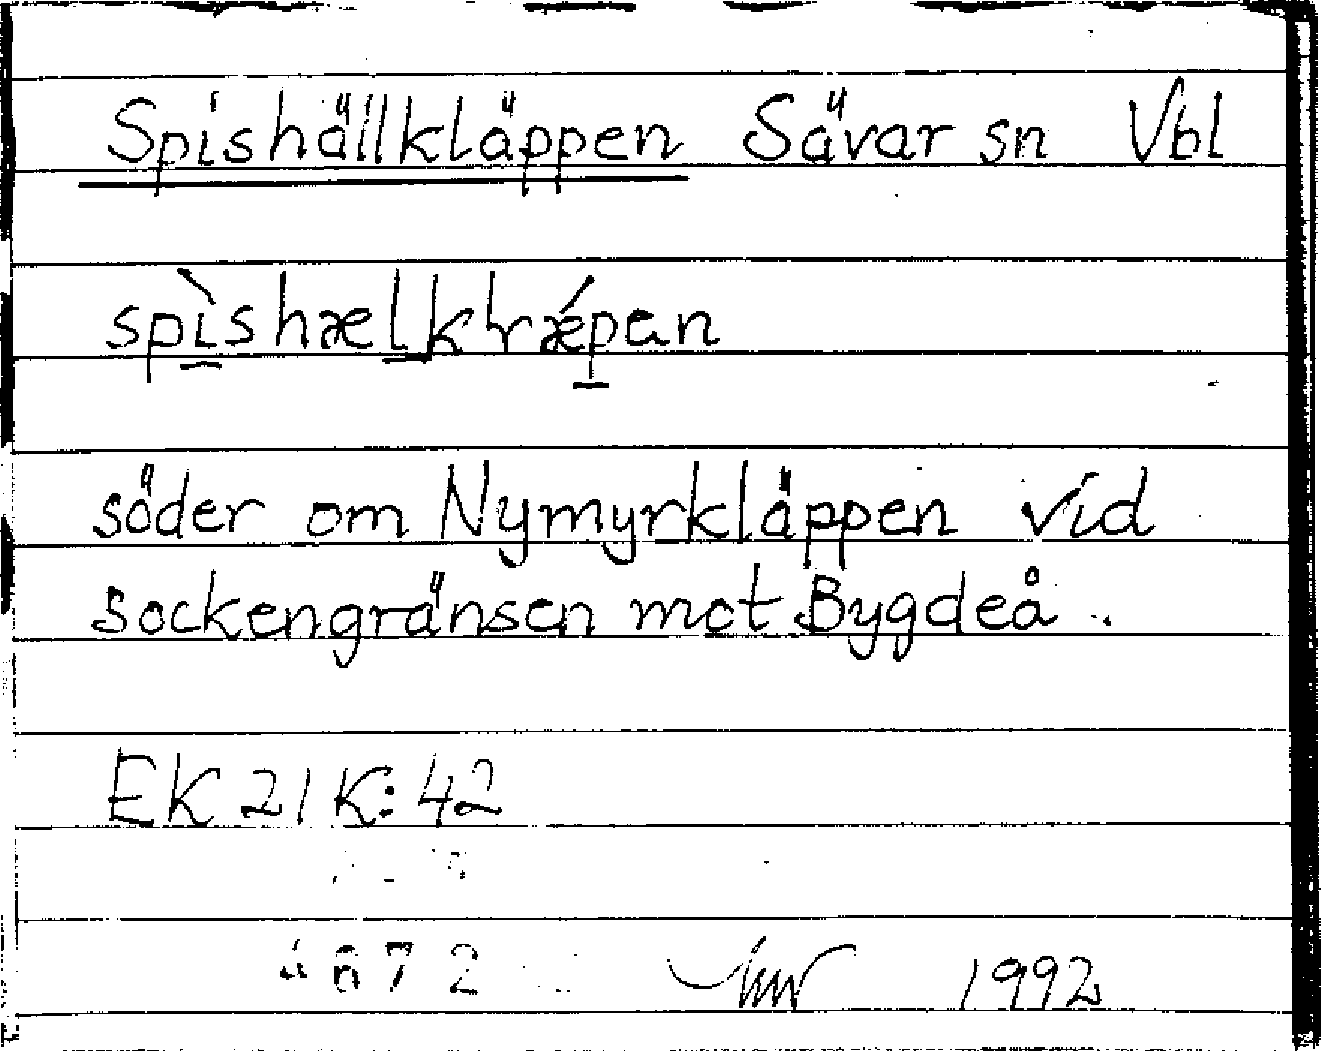 Spishällkläppen Sävar sn Vbl
spìshælklrǽpan
söder om Nymyrkläppen vid
sockengränsen mot Bygdeå.
EK 21 K: 42
1992